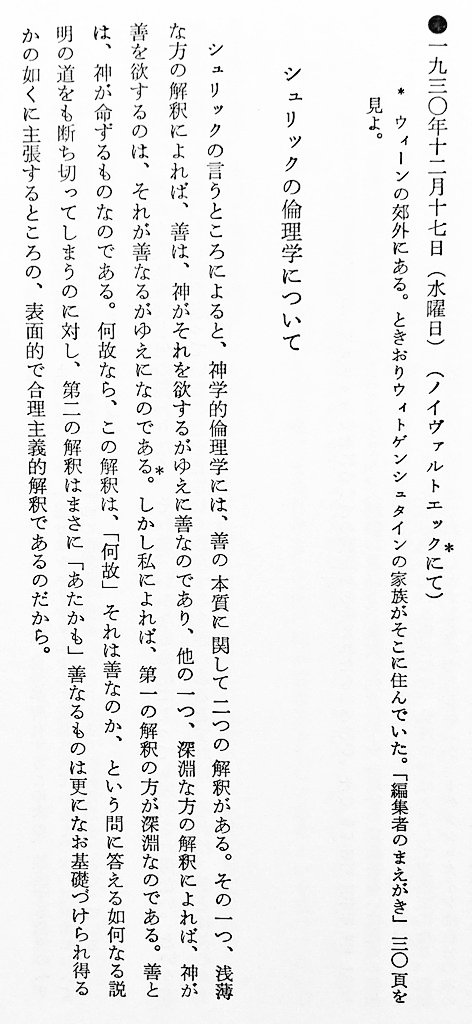 ●一九三〇年十二月十七日（水曜日）（ノイヴァルトエック*にて）
* ウィーンの郊外にある。ときおりウィトゲンシュタインの家族がそこに住んでいた。「編集者のまえがき」三〇頁を
見よ。
シュリックの倫理学について
シュリックの言うところによると、神学的倫理学には、善の本質に関して二つの解釈がある。その一つ、浅薄
な方の解釈によれば、善は、神がそれを欲するがゆえに善なのであり、他の一つ、深淵な方の解釈によれば、神が
善を欲するのは、それが善なるがゆえになのである*。しかし私によれば、第一の解釈の方が深淵なのである。善と
は、神が命ずるものなのである。何故なら、この解釈は、「何故」それは善なのか、という問に答える如何なる説
明の道をも断ち切ってしまうのに対し、第二の解釈はまさに「あたかも」善なるものは更になお基礎づけられ得る
かの如くに主張するところの、表面的で合理主義的解釈であるのだから。